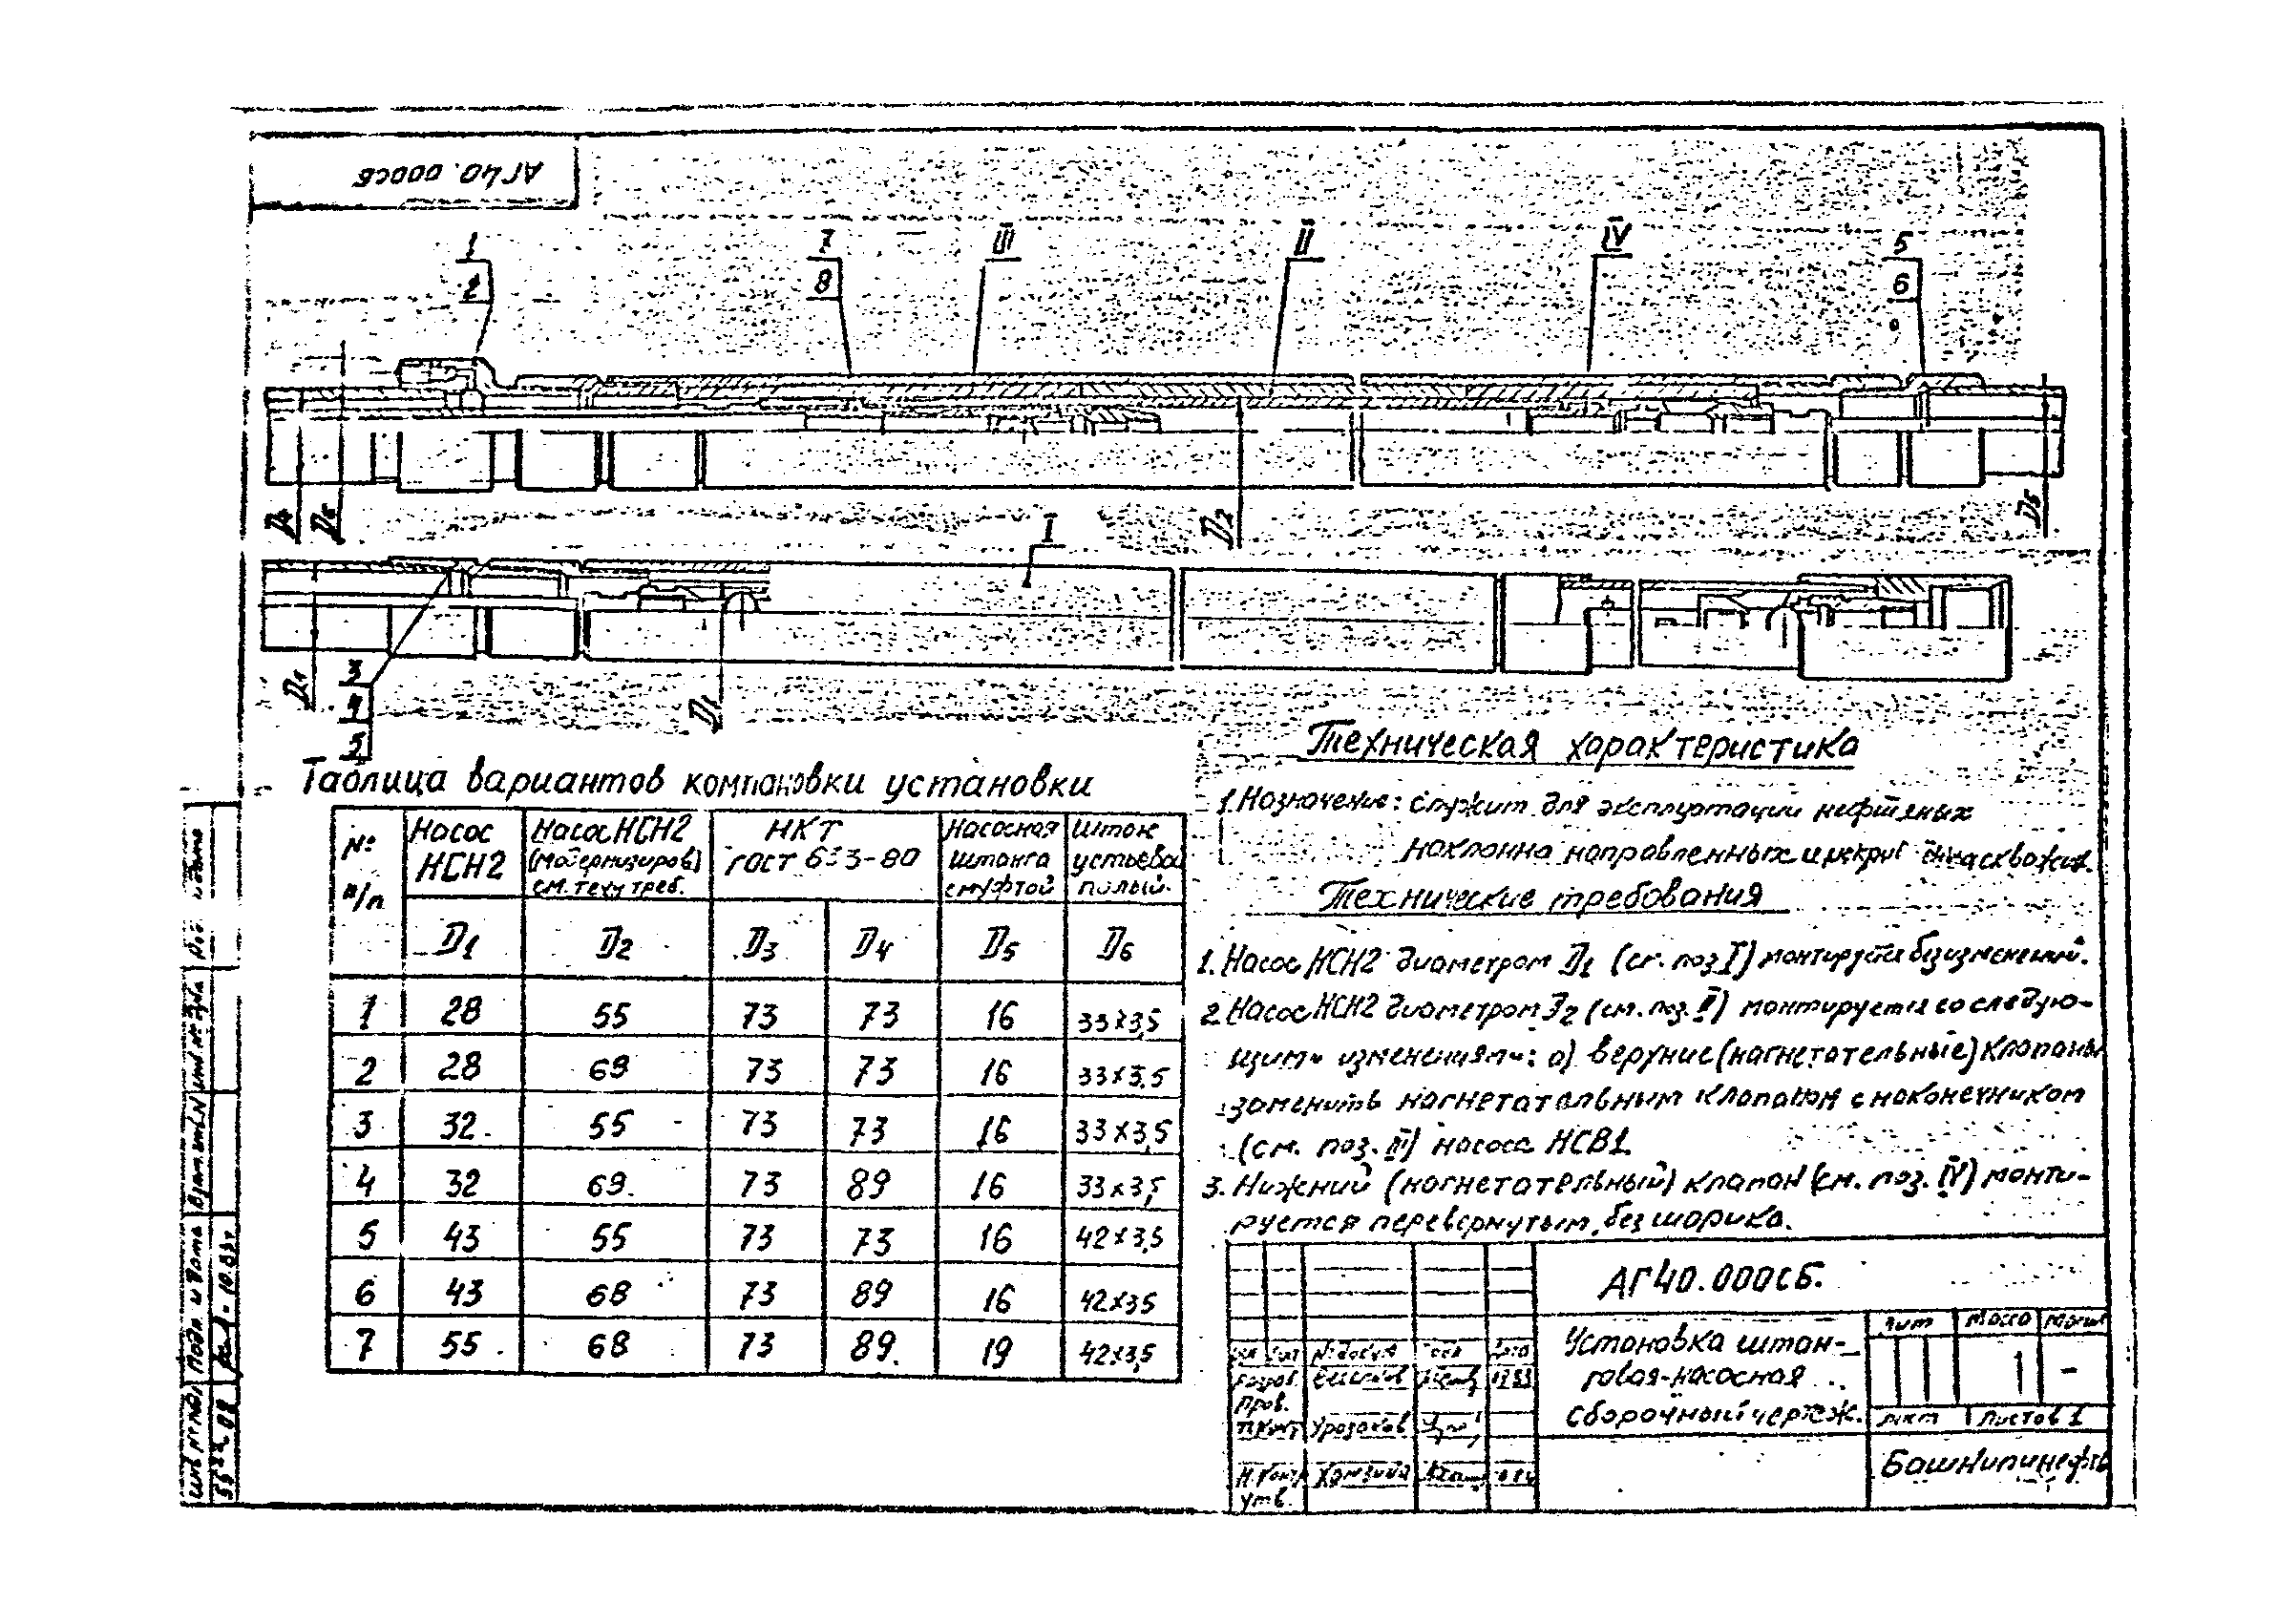 АГ40.000СБ
1
2
7
8
III
II
IV
5
6
D4
D6
D2
D5
I
D1
3
4
5
Таблица вариантов компановки установки
№ п/п
Насос НСН2
Насос НСН2 (модернизиров) см. техн треб.
НКТ ГОСТ 633-80
Насосная штанга с муфтой
Шток устьевой полый.
D1 D2 D3 D4 D5 D6
1 28 55 73 73 16 33x3,5
2 28 69 73 73 16 33x3,5
3 32 55 73 73 16 33x3,5
4 32 69 73 89 16 33x3,5
5 43 55 73 73 16 42x3,5
6 43 68 73 89 16 42x3,5
7 55 68 73 89 19 42x3,5
Техническая характеристика
1. Назначение: служит для эксплуатации нефтяных
наклонно направленных и искрив
Технические требования
1. Насос НСН2 диаметром D1 (см. поз. I) монтируется без изменений.
2. Насос НСН2 диаметром D2 (см. поз. II) монтируется со следую-
щими изменениями: а) верхние (нагнетательные) клапаны
заменить нагнетательным клапаном с наконечником
(см. поз. III) насоса НСВ1.
3. Нижний (нагнетательный) клапан (см. поз. IV) монти-
руется перевернутым, без шарика.
АГ40.000СБ.
Установка штан-
говая-насосная
сборочный чертеж.
Лит Масса Масшт
1 -
Лист Листов 1
БашНИПИнефть
Разраб.
Пров.
Т.Контр Уразаков
Н.Контр
Утв.
Подп и дата
Взам. инв. N
Инв № дубл
Подп и дата
Инв № подл